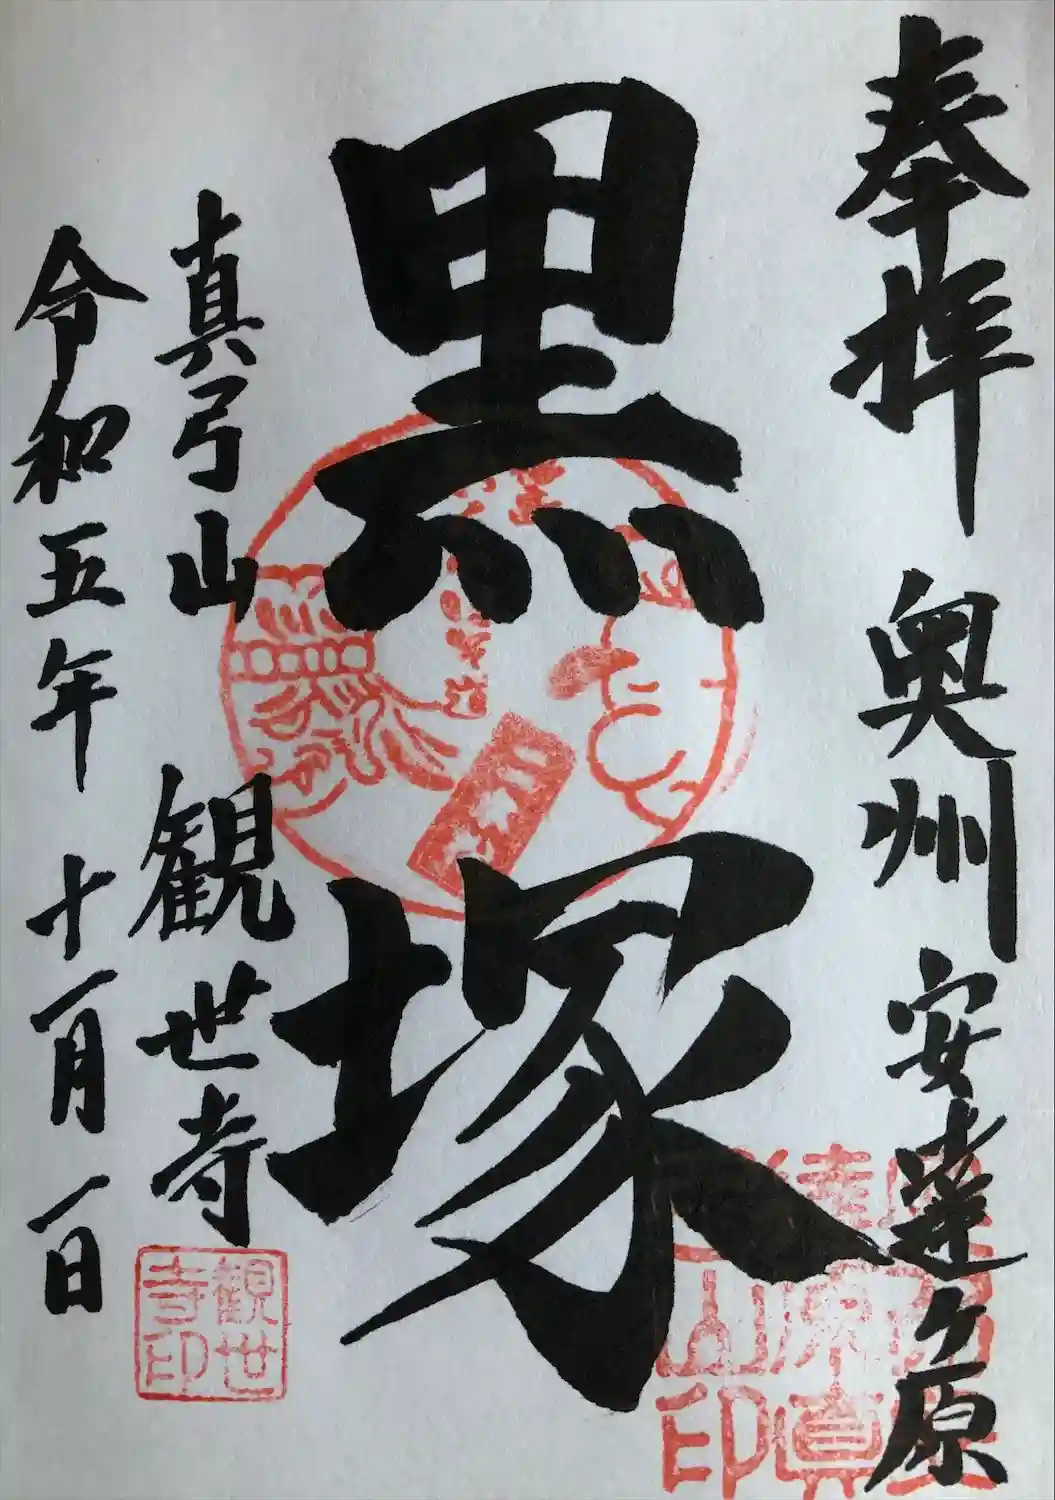 奉拝 奥州 安達ヶ原
黒塚
真弓山 観世寺
令和五年 十一月 一日
観世
寺印